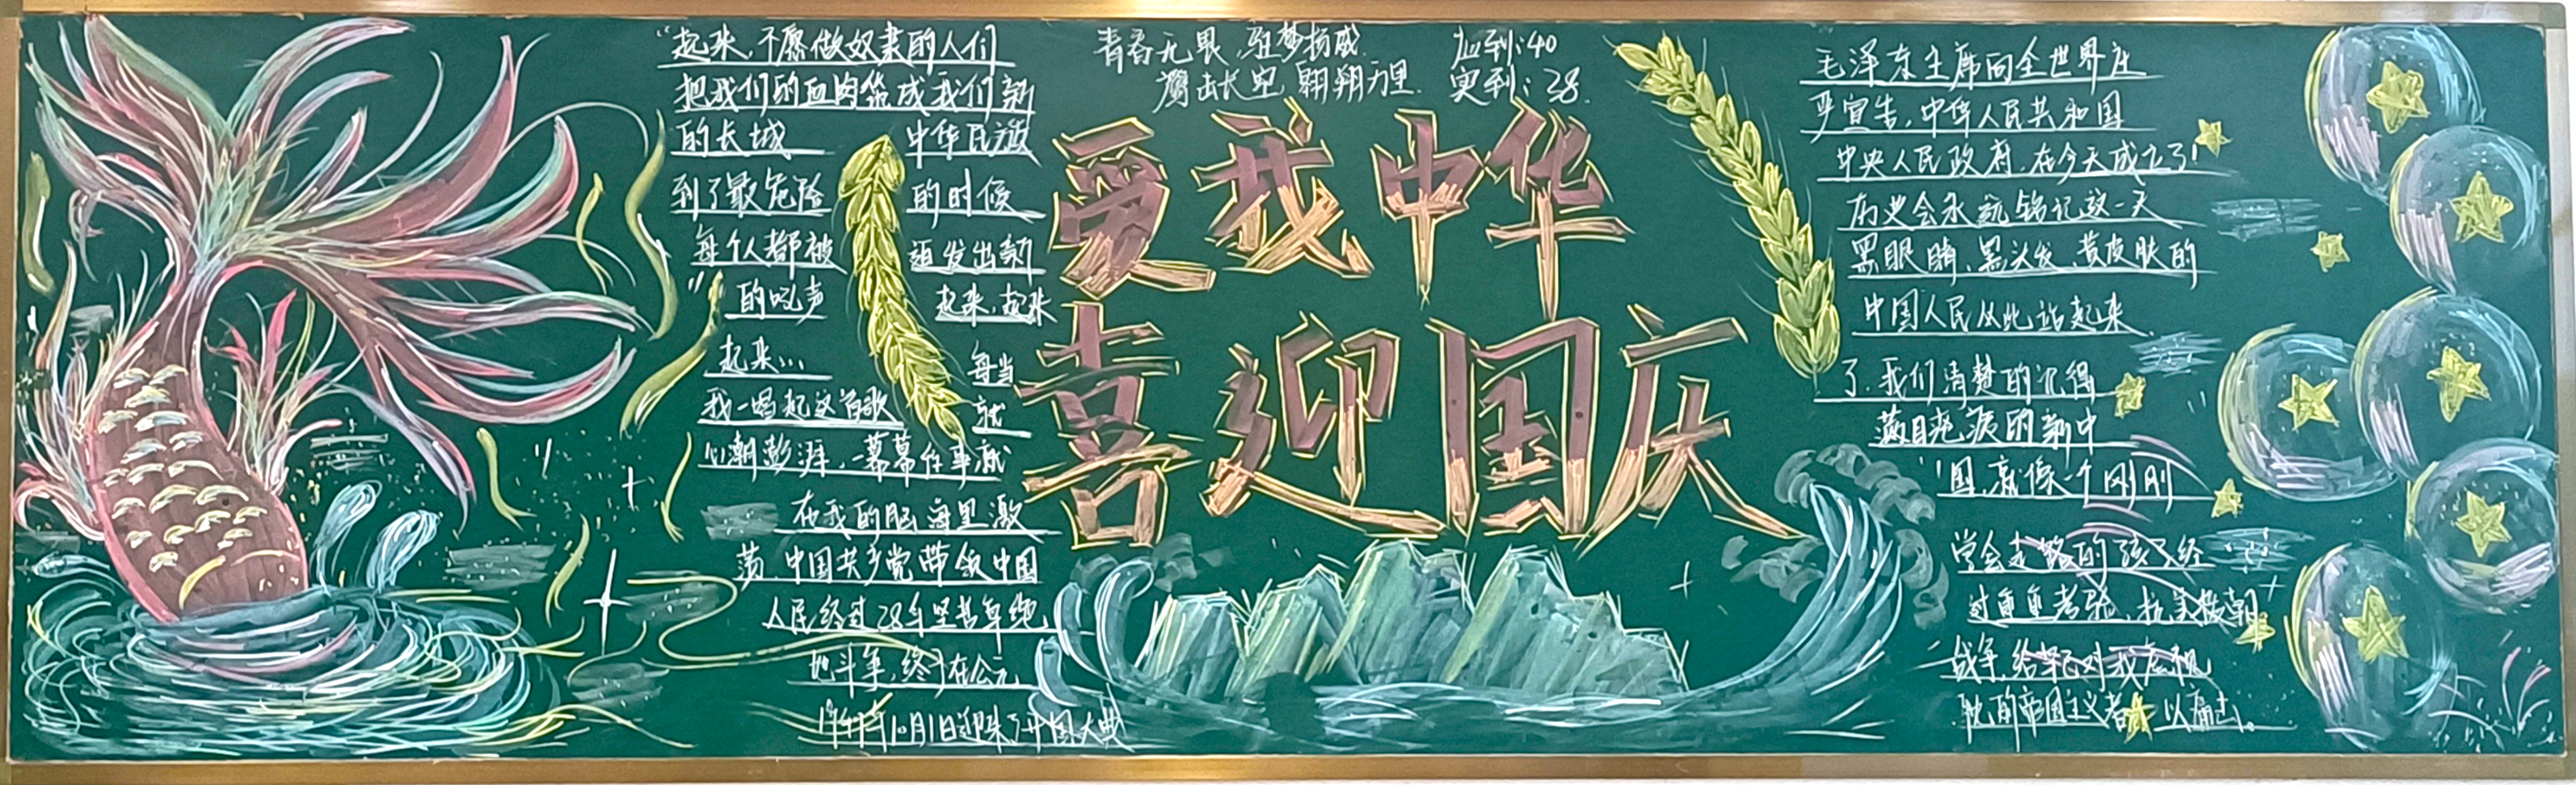 “起来，不愿做奴隶的人们
把我们的血肉筑成我们新
的长城 中华民族
到了最危险 的时候
每个人都被 迫发出新
” 的吼声 起来，起来
起来… 每当
我一唱起这首歌 就
心潮澎湃，一幕幕往事就
在我的脑海里激
荡，中国共产党带领中国
人民经过28年坚苦卓绝
地斗争，终于在公元
1949年10月1日迎来了开国大典
青春无畏，驻梦扬威
鹰击长空，翱翔万里
应到：40
实到：38
爱我中华
喜迎国庆
毛泽东主席向全世界庄
严宣告，中华人民共和国
中央人民政府，在今天成立了！
历史会永远铭记这一天
黑眼睛，黑头发，黄皮肤的
中国人民从此站起来
了，我们清楚的记得
满目疮痍的新中
国，就像一个刚刚
学会走路的孩子经
过重重考验，抗美援朝
战争，给予了对我虎视
眈的帝国主义者 以痛击。